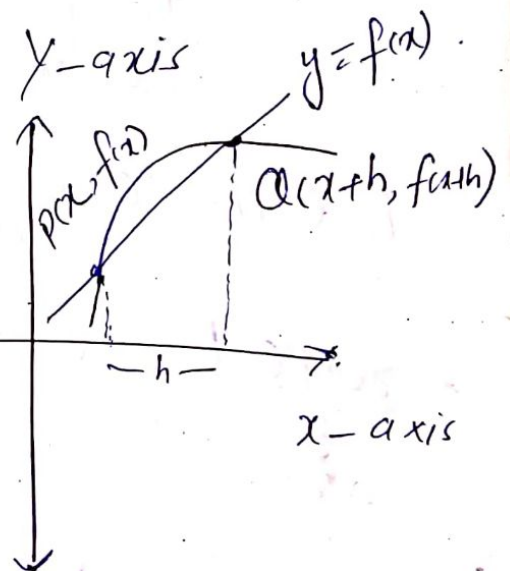 Y-axis
y = f(x).
P(x, f(x))
Q(x+h, f(x+h)
h
x-axis